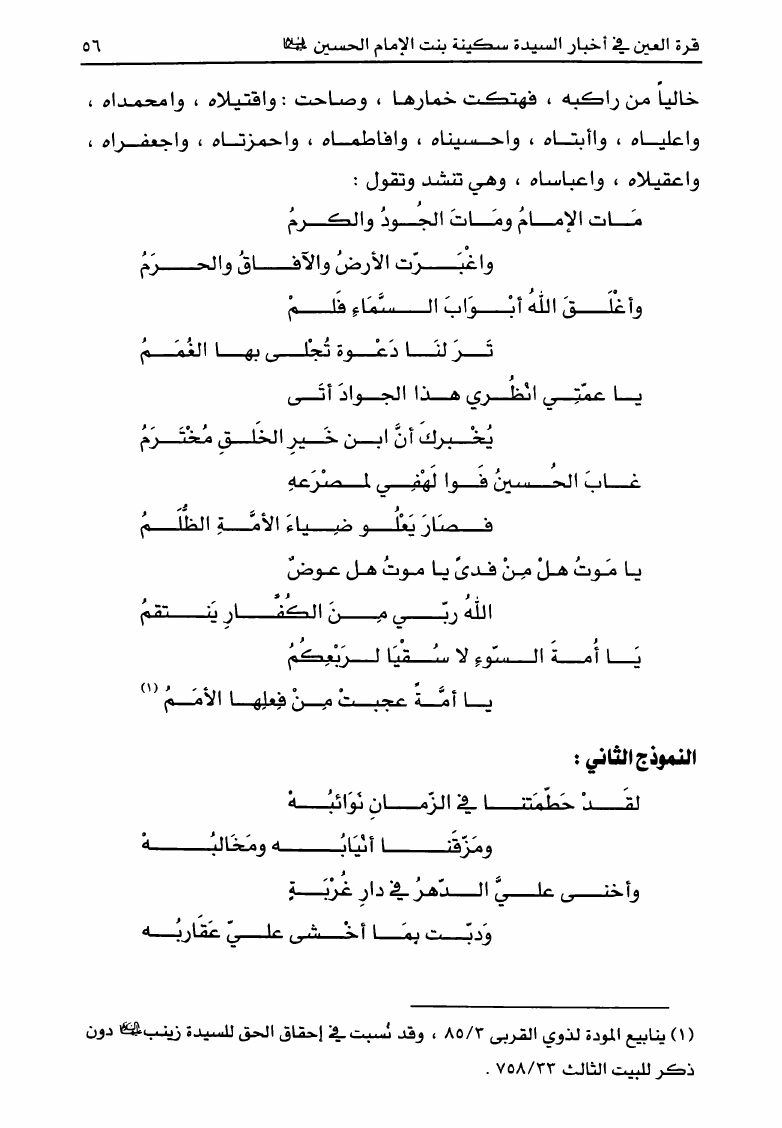 قرة العين في أخبار السيدة سكينة بنت الإمام الحسين ٥٦
خالياً من راكبه ، فهتكت خمارها ، وصاحت : واقتيلاه ، وامحمداه ،
واعلياه ، واأبتاه ، واحسيناه ، وافاطماه ، واحمزتاه ، واجعفراه ،
واعقيلاه ، واعباساه ، وهي تنشد وتقول :
مَات الإمامُ ومَاتَ الجُودُ والكرمُ
واغْبَرّت الأرضُ والآفاقُ والحرَمُ
وأغْلَقَ اللهُ أبْوَابَ السَّمَاءِ فَلمْ
تَرَ لنَا دَعْوة تُجْلى بها الغُمَمُ
يا عمّتِي انْظُري هذا الجوادَ أتَى
يُخْبركَ أنَّ ابن خَيرِ الخَلقِ مُخْتَرَمُ
غابَ الحُسينُ فَوا لَهْفِي لمصْرَعهِ
فصَارَ يَعْلُو ضِياءَ الأمَّةِ الظُّلَمُ
يا مَوتُ هلْ مِنْ فدىً يا موتُ هل عوضٌ
اللهُ ربّي مِنَ الكُفَّارِ يَنتقمُ
يَا أُمةَ السّوءِ لا سُقْيَا لرَبْعِكُمُ
يا أمَّةً عجبتْ مِنْ فِعلِها الأمَمُ (١)
النموذج الثاني :
لقَدْ حَطّمَتنا في الزّمانِ نَوَائبُهْ
ومَزّقَنا أنْيَابُه ومَخَالبُهْ
وأخنى عليَّ الدّهرُ في دارِ غُرْبَةٍ
وَدبّت بمَا أخْشى عليّ عَقَاربُه
(١) ينابيع المودة لذوي القربى ٨٥/٣ ، وقد نُسبت في إحقاق الحق للسيدة زينب دون
ذكر للبيت الثالث ٧٥٨/٣٣ .